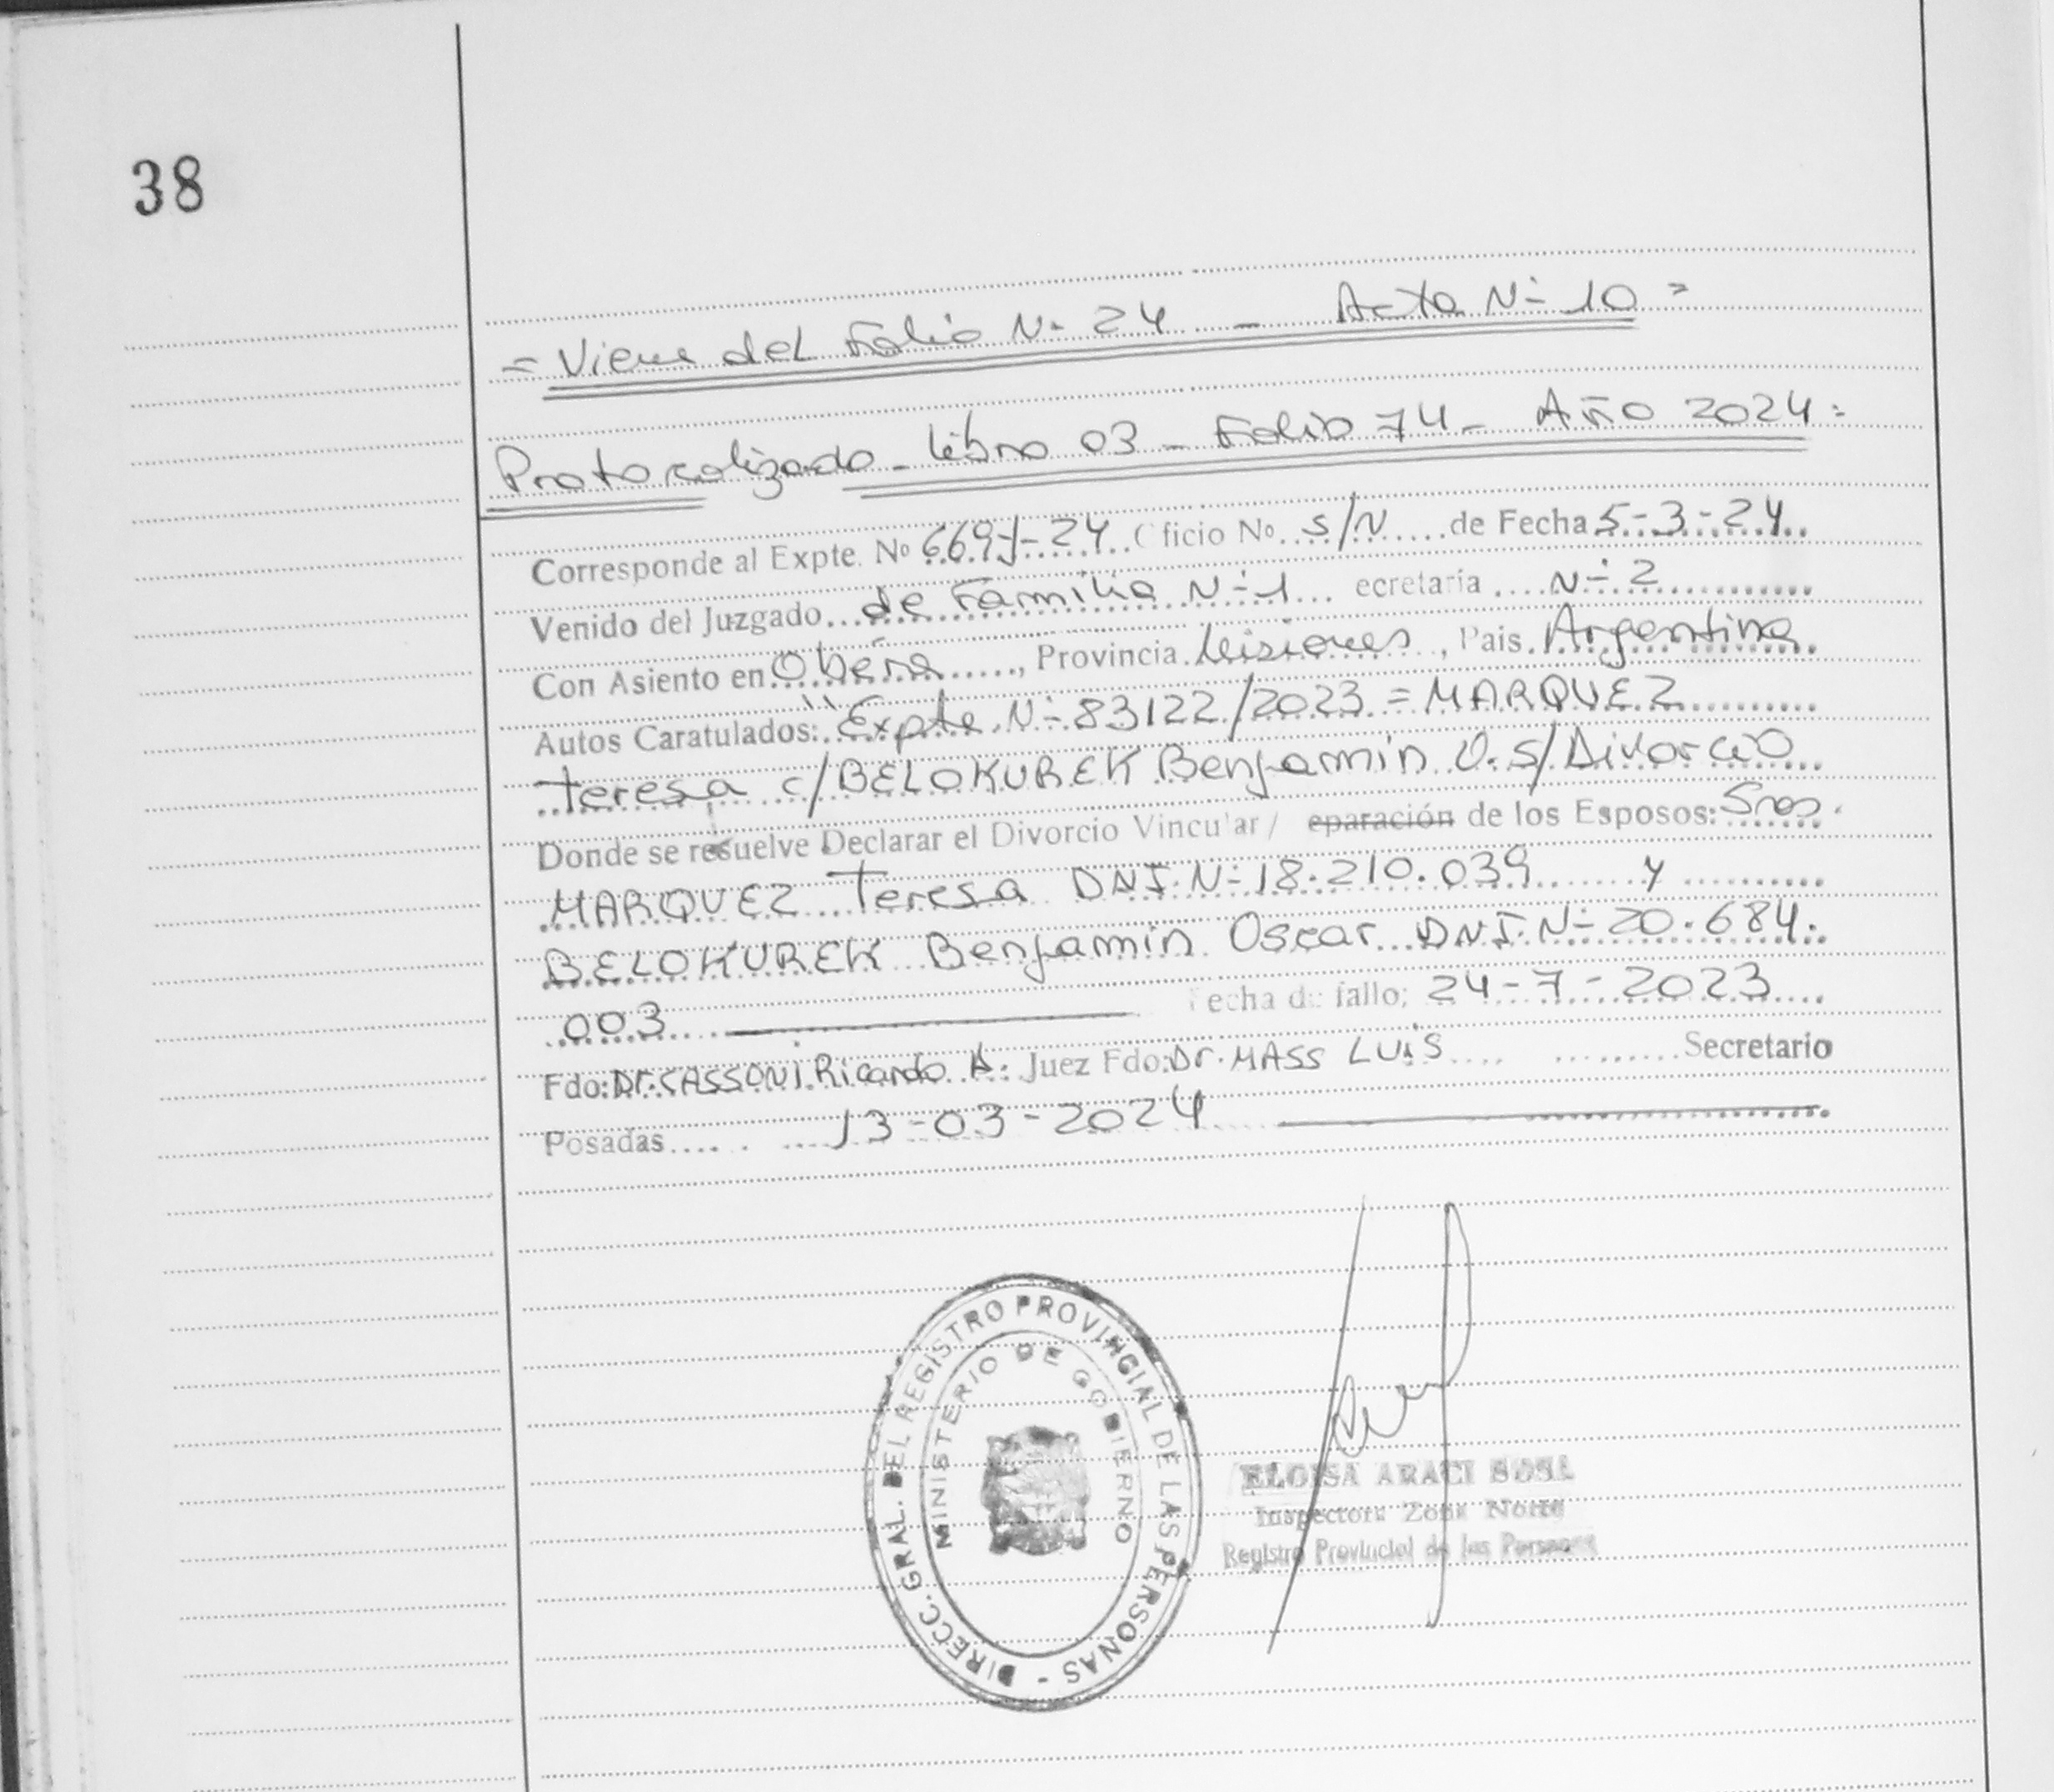 38
= Viene del Folio N- 24 - Acta N- 10 =
Protocolizado - Libro 03 - Folio 74 - Año 2024 =
Corresponde al Expte. Nº 669-J-24 Oficio No. S/N de Fecha 5-3-24
Venido del Juzgado de Familia N-1 ecretaría N- 2
Con Asiento en Oberá, Provincia Misiones, Pais. Argentina
Autos Caratulados: "Expte. N- 83122/2023 = MARQUEZ
Teresa c/ BELOKUREK Benjamin O. S/ Divorcio
Donde se resuelve Declarar el Divorcio Vincular / eparación de los Esposos: Sres.
MARQUEZ Teresa DNI. N- 18.210.039 y
BELOKUREK Benjamin Oscar DNI. N- 20.684.
003 Fecha de fallo; 24-7-2023
Fdo: Dr. CASSONI Ricardo A. Juez Fdo: Dr. MASS LUiS Secretario
Posadas 13-03-2024
DIRECC. GRAL. DEL REGISTRO PROVINCIAL DE LAS PERSONAS -
MINISTERIO DE GOBIERNO
ELOISA ARACI SOSA
Inspectora Zona Norte
Registro Provincial de las Personas